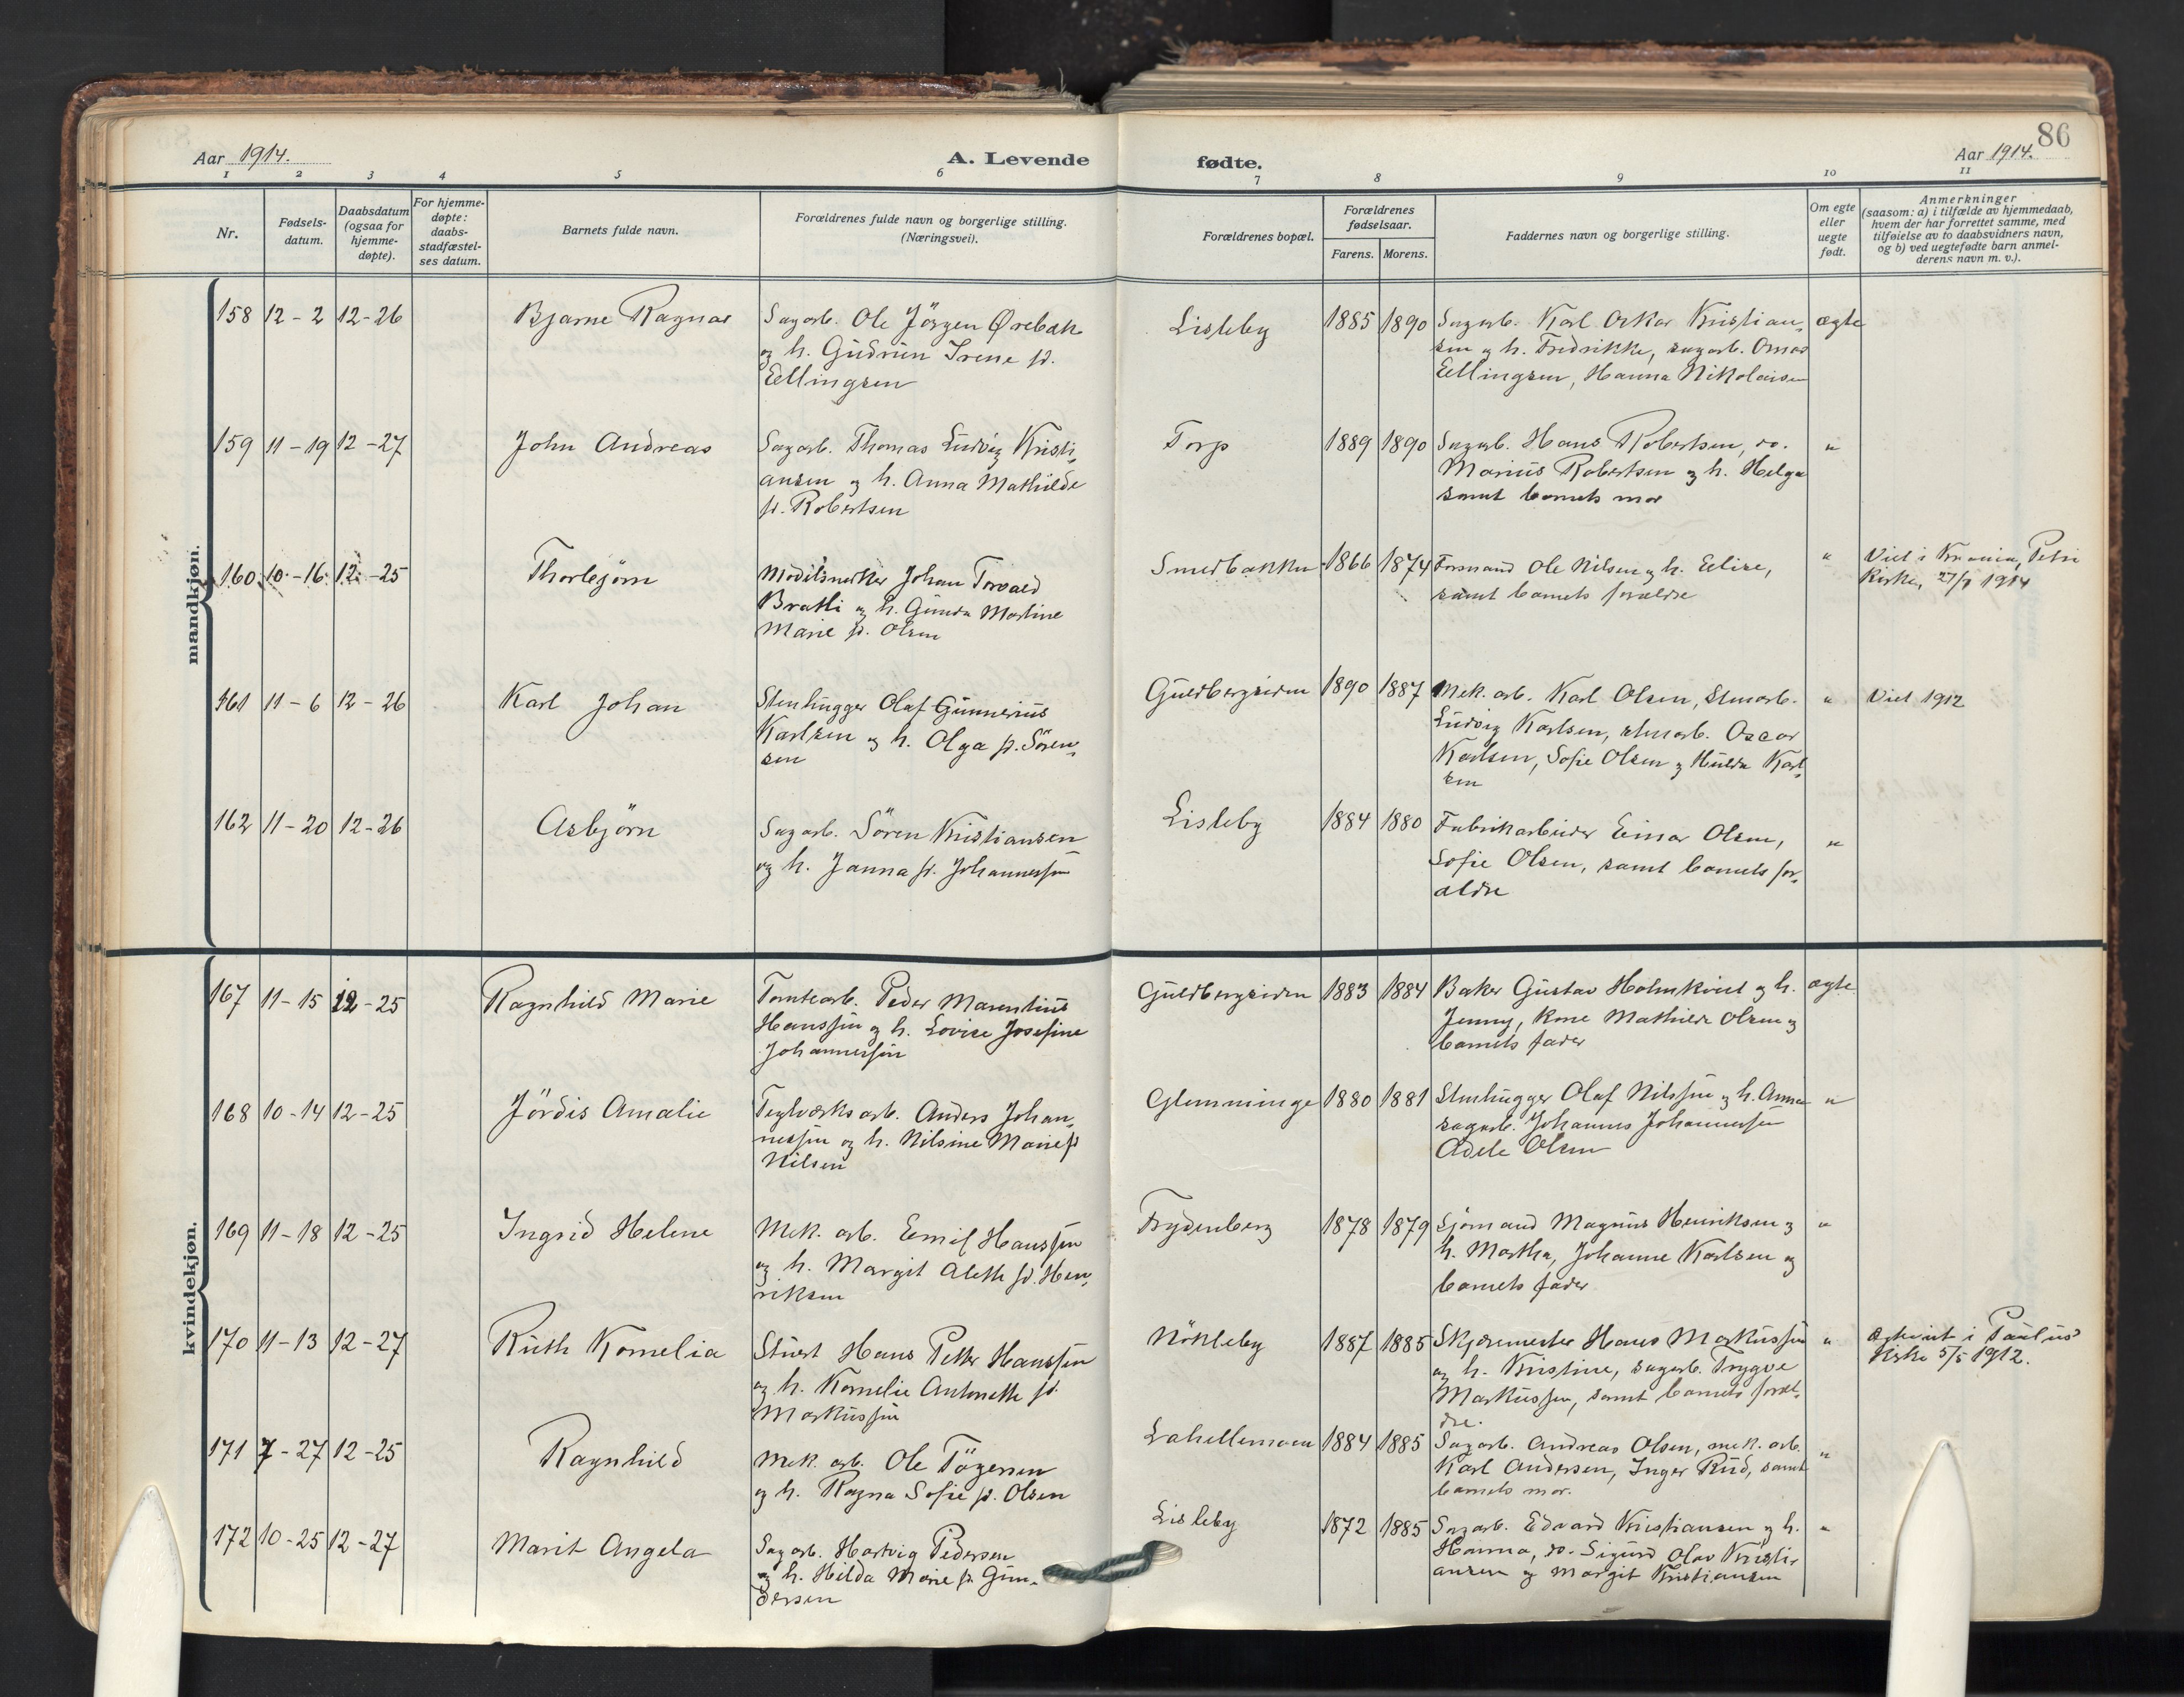 Aar 1914.
A. Levende
fødte.
86
Aar 1914.
1 2 3 4 5 6 7 8 9 10 11
Nr.
Fødsels-
datum.
Daabsdatum
(ogsaa for
hjemme-
døpte).
For hjemme-
døpte:
daabs-
stadfæstel-
ses datum.
Barnets fulde navn.
Forældrenes fulde navn og borgerlige stilling.
(Næringsvei).
Forældrenes bopæl.
Forældrenes
fødselsaar.
Farens. Morens.
Faddernes navn og borgerlige stilling.
Om egte
eller
uegte
født.
Anmerkninger
(saasom: a) i tilfælde av hjemmedaab,
hvem der har forrettet samme, med
tilføielse av to daabsvidners navn,
og b) ved uegtefødte barn anmel-
derens navn m. v.).
mandkjøn.
158 12-2 12-26
Bjarne Ragnar
Sagarb. Ole Jörgen Ørebæk
og h. Gudrun Irene f.
Ellingsen
Lisleby
1885 1890
Sagarb. Karl Oskar Kristian-
sen og h. Fredrikke, sagarb. Omar
Ellingsen, Hanna Nikolaisen
ægte
159 11-19 12-27
John Andreas
Sagarb. Thomas Ludvig Kristi-
ansen og h. Anna Mathilde
f. Robertsen
Torp
1889 1890
Sagarb. Hans Robertsen, do.
Marius Robertsen og h. Helga
samt barnets mor
"
160 10-16 12-25
Thorbjörn
Modelsnekker Johan Torvald
Bratli og h. Gunda Martine
Marie f. Olsen
Smedbakken
1866 1874
Formand Ole Nilsen og h. Elise,
samt barnets forældre
"
Viet i Kr.ania, Petri
Kirke, 27/8 1914
161 11-6 12-26
Karl Johan
Stenhugger Olaf Gunnerius
Karlsen og h. Olga f. Sören-
sen
Guldbergsiden
1890 1887
Mek. arb. Karl Olsen, stenarb.
Ludvig Karlsen, stenarb. Oscar
Karlsen, Sofie Olsen og Hulda Karl-
sen
"
Viet 1912
162 11-20 12-26
Asbjörn
Sagarb. Sören Kristiansen
og h. Janna f. Johannessen
Lisleby
1884 1880
Fabrikarbeider Einar Olsen,
Sofie Olsen, samt barnets for-
ældre
"
kvindekjøn.
167 11-15 12-25
Ragnhild Marie
Tomtearb. Peder Marenthius
Hanssen og h. Lovise Josefine
Johannessen
Guldbergsiden
1883 1884
Baker Gustav Holmkvist og h.
Jenny, kone Mathilde Olsen og
barnets fader
ægte
168 10-14 12-25
Jördis Amalie
Teglverksarb. Anders Johan-
nessen og h. Nilsine Marie f.
Nilsen
Glemminge
1880 1881
Stenhugger Olaf Nilssen og h. Anna
sagarb. Johannes Johannessen
Adele Olsen
"
169 11-18 12-25
Ingrid Helene
Mek. arb. Emil Hanssen
og h. Margit Aleth f. Hen-
riksen
Frydenberg
1878 1879
Sjömand Magnus Henriksen og
h. Martha, Johanne Karlsen og
barnets fader
"
170 11-13 12-27
Ruth Kornelia
Stuert Hans Petter Hanssen
og h. Kornelie Antonette f.
Markussen
Nökleby
1887 1885
Skjæremester Hans Markussen
og h. Kristine, sagarb. Trygve
Markussen, samt barnets foræl-
dre.
"
Egteviet i Paulus
Kirke 5/5 1912.
171 7-27 12-25
Ragnhild
Mek. arb. Ole Tögersen
og h. Ragna Sofie f. Olsen
Lahellemoen
1884 1885
Sagarb. Andreas Olsen, mek. arb.
Karl Andersen, Inger Rud, samt
barnets mor.
"
172 10-25 12-27
Marit Angela
Sagarb. Hartvig Pedersen
og h. Hilda Marie f. Gun-
dersen
Lisleby
1872 1885
Sagarb. Edvard Kristiansen og h.
Hanna, do. Sigurd Olav Kristi-
ansen og Margit Kristiansen
"